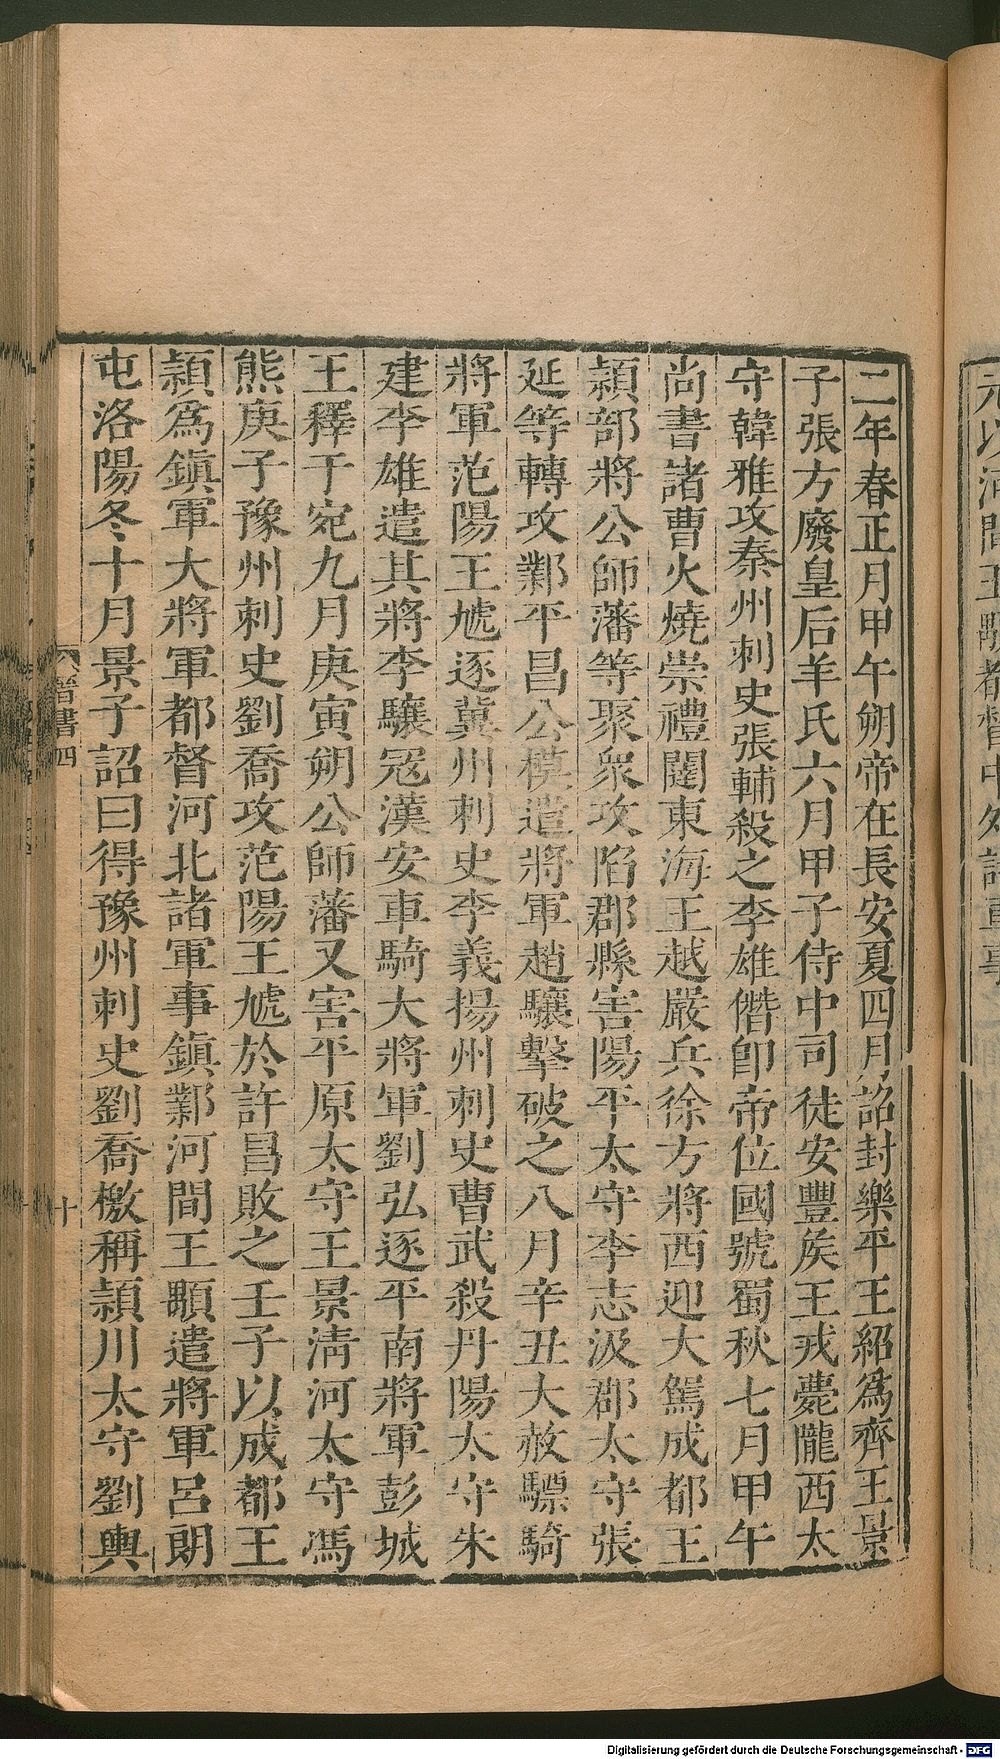 二年春正月甲午朔帝在長安夏四月詔封樂平王紹爲齊王景
子張方廢皇后羊氏六月甲子侍中司徒安豐矦王戎薨隴西太
守韓雅攻秦州刺史張輔殺之李雄僭卽帝位國號蜀秋七月甲午
尚書諸曹火燒崇禮闥東海王越嚴兵徐方將西迎大駕成都王
穎部將公師藩等聚衆攻陷郡縣害陽平太守李志汲郡太守張
延等轉攻鄴平昌公模遣將軍趙驤擊破之八月辛丑大赦驃騎
將軍范陽王虓逐冀州刺史李義揚州刺史曹武殺丹陽太守朱
建李雄遣其將李驤冦漢安車騎大將軍劉弘逐平南將軍彭城
王釋于宛九月庚寅朔公師藩又害平原太守王景淸河太守馮
熊庚子豫州刺史劉喬攻范陽王虓於許昌敗之壬子以成都王
穎爲鎭軍大將軍都督河北諸軍事鎭鄴河間王顒遣將軍呂朗
屯洛陽冬十月景子詔曰得豫州刺史劉喬檄稱頴川太守劉輿
晉書四
十
Digitalisierung gefördert durch die Deutsche Forschungsgemeinschaft - DFG